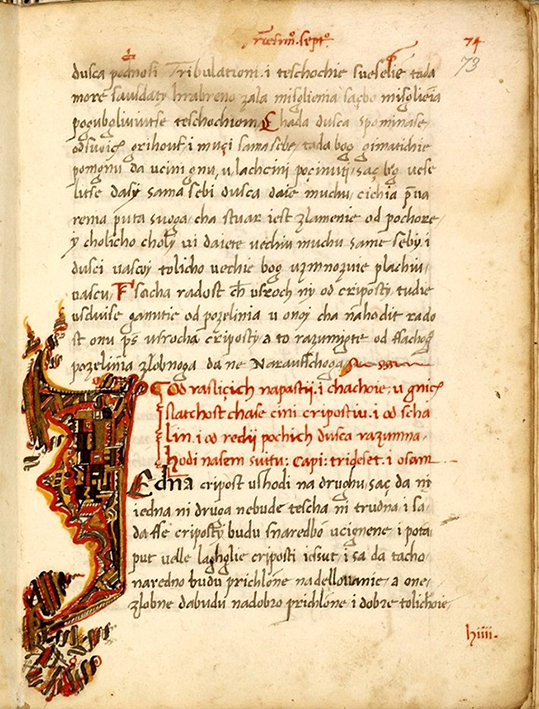 74
73
dusca podnosi Tribulationi. i teschochie sueselie tada
more sausdaty hrabreno zala misgliema sacbo misglieia
pogubgliuuitse teschochiom Chada dusca spominase
grihouh i muci sama sebe, tada bog gimatichie
pomgnu da ucini gnu, u lachcini pocinuti, sac bog uese
lutse dasy sama sebi dusca daie muchu, cichia praua
rema puta suoga, cha stuar iest zlamenie od pochore
y cholicho choly ui daiete uechiu muchu same seby, i
dusci uascoy tolicho uechie bog uzmnozuie plachiu
uascu, Fsacha radost ch usroch ny od criposty, tudie
usduise ganutie od pozelinia u onoy cha nahodit rado
st onu usrocha criposty, a to razumijte od
pozelinia zlobnoga da ne Narauschoga
Od raslicich napastij, i chachoie, u gnich
slatchost chase cini cripostiu, i od scha
lin, i od redij pochich dusca razumna
hodi nasem suitu: Capi: trideset, i osam
Edna cripost ushodi na drughu, sac da ni
iedna ni druga nebude tescha ni trudna i la
da sse criposty budu snaredbo ucignene, i pota
put udle laghglie criposti iesut, i sa da tacho
naredno budu prichlone na dellouanie, a one
zlobne dabudu nadobro prichlone, i dobre tolichoie
hiiii.